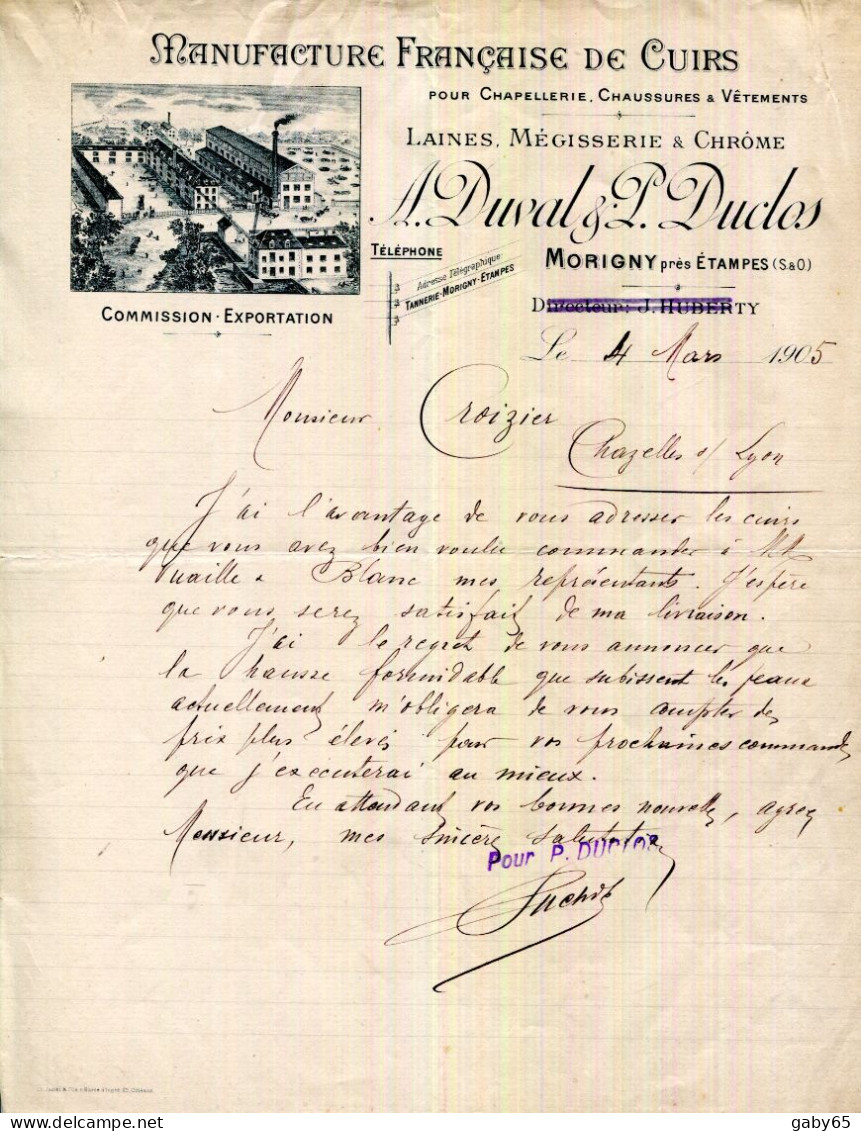 MANUFACTURE FRANÇAISE DE CUIRS
POUR CHAPELLERIE, CHAUSSURES & VÊTEMENTS
LAINES, MÉGISSERIE & CHRÔME
A. Duval & P. Duclos
TÉLÉPHONE
Adresse Télégraphique
TANNERIE-MORIGNY-ETAMPES
MORIGNY près ÉTAMPES (S.&O)
COMMISSION - EXPORTATION
Directeur: J. HUBERTY
Le 4 Mars 1905
Monsieur Croizier
Chazelles s/ Lyon
J'ai l'avantage de vous adresser les cuirs
que vous avez bien voulu commander à MM
& Blanc mes représentants. J'espère
que vous serez satisfait de ma livraison.
J'ai le regret de vous annoncer que
la hausse formidable que subissent les peaux
actuellement m'obligera de vous compter des
prix plus élevés pour vos prochaines commandes
que j'executerai au mieux.
En attendant vos bonnes nouvelles, agréez
Monsieur, mes sincères salutations
Pour P. DUCLOS
gaby65